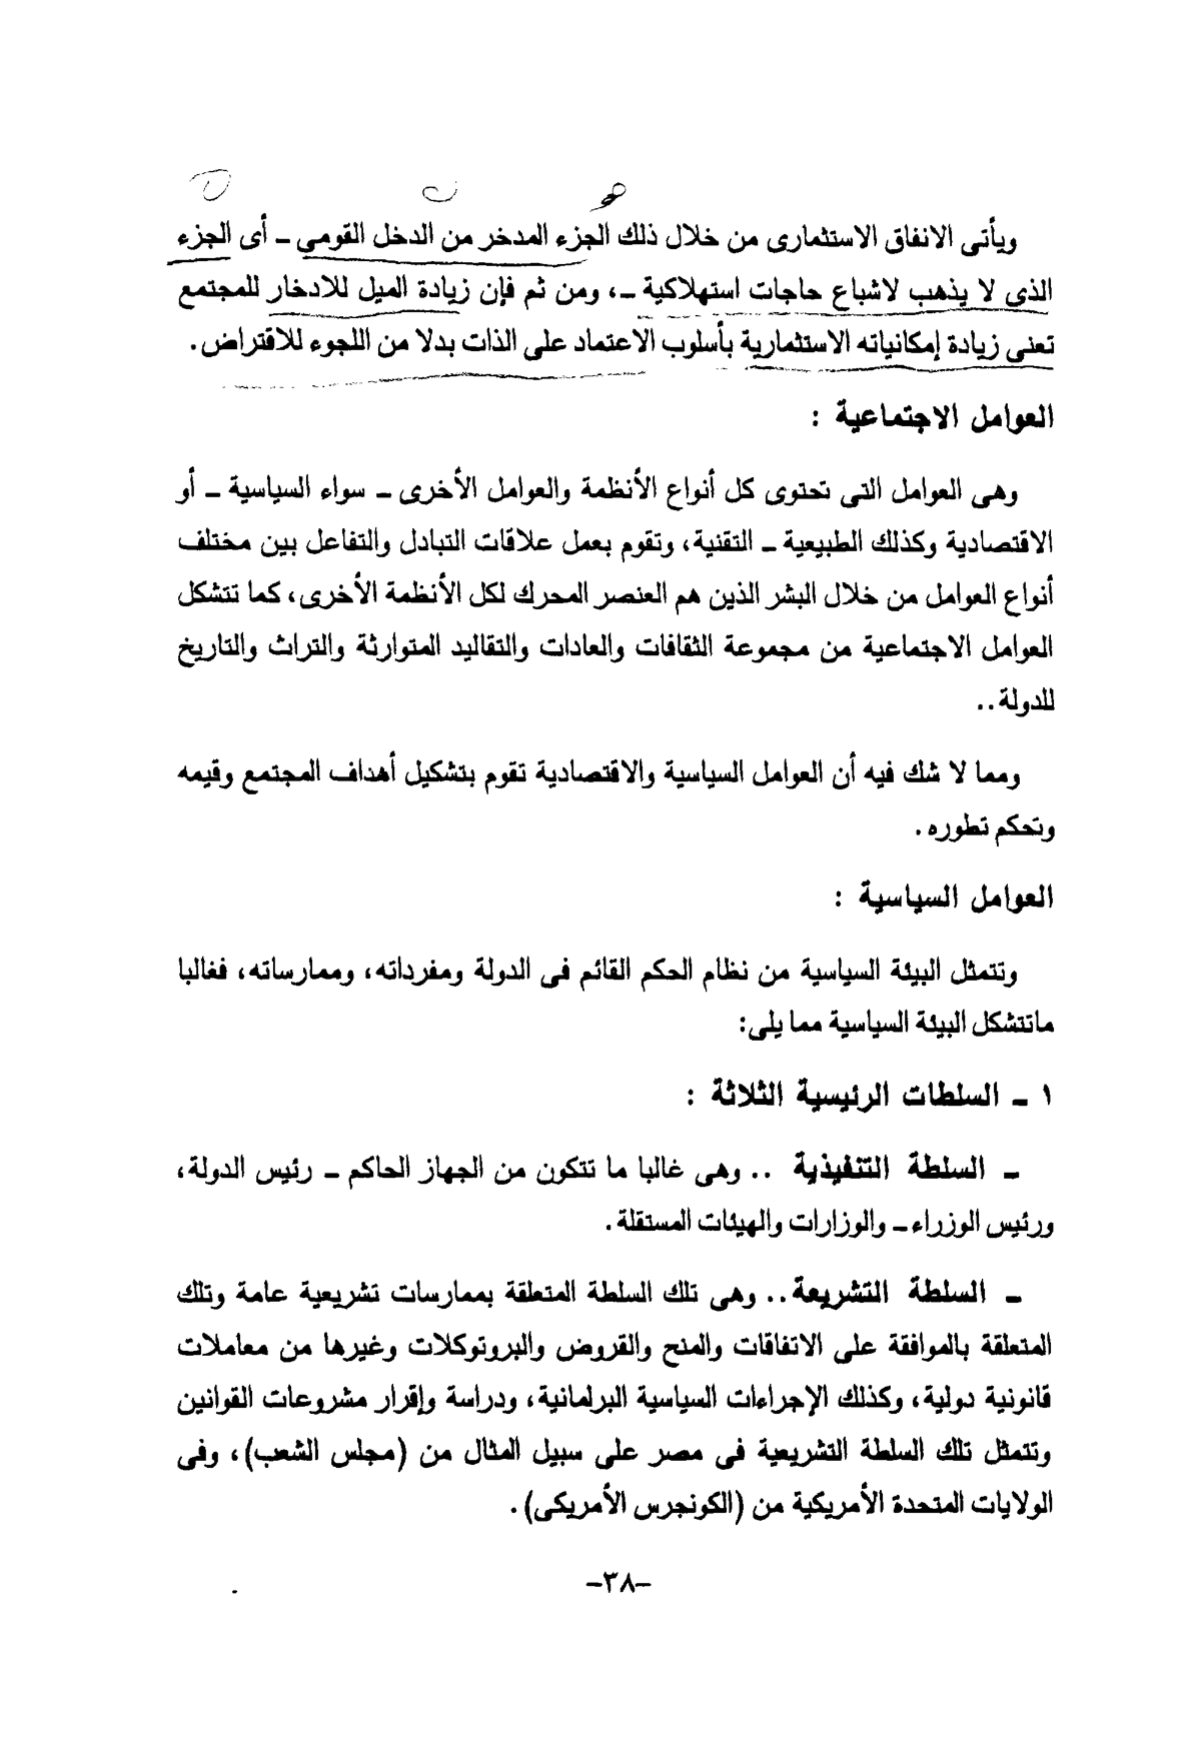 ويأتى الانفاق الاستثمارى من خلال ذلك الجزء المدخر من الدخل القومى ـ أى الجزء
الذى لا يذهب لاشباع حاجات استهلاكية ـ، ومن ثم فإن زيادة الميل للادخار للمجتمع
تعنى زيادة إمكانياته الاستثمارية بأسلوب الاعتماد على الذات بدلا من اللجوء للاقتراض.
العوامل الاجتماعية :
وهى العوامل التى تحتوى كل أنواع الأنظمة والعوامل الأخرى ـ سواء السياسية ـ أو
الاقتصادية وكذلك الطبيعية ـ التقنية، وتقوم بعمل علاقات التبادل والتفاعل بين مختلف
أنواع العوامل من خلال البشر الذين هم العنصر المحرك لكل الأنظمة الأخرى، كما تتشكل
العوامل الاجتماعية من مجموعة الثقافات والعادات والتقاليد المتوارثة والتراث والتاريخ
للدولة..
ومما لا شك فيه أن العوامل السياسية والاقتصادية تقوم بتشكيل أهداف المجتمع وقيمه
وتحكم تطوره.
العوامل السياسية :
وتتمثل البيئة السياسية من نظام الحكم القائم فى الدولة ومفرداته، وممارساته، فغالبا
ماتتشكل البيئة السياسية مما يلى:
١ ـ السلطات الرئيسية الثلاثة :
ـ السلطة التنفيذية .. وهى غالبا ما تتكون من الجهاز الحاكم ـ رئيس الدولة،
ورئيس الوزراء ـ والوزارات والهيئات المستقلة.
ـ السلطة التشريعة.. وهى تلك السلطة المتعلقة بممارسات تشريعية عامة وتلك
المتعلقة بالموافقة على الاتفاقات والمنح والقروض والبروتوكلات وغيرها من معاملات
قانونية دولية، وكذلك الإجراءات السياسية البرلمانية، ودراسة وإقرار مشروعات القوانين
وتتمثل تلك السلطة التشريعية فى مصر على سبيل المثال من (مجلس الشعب)، وفى
الولايات المتحدة الأمريكية من (الكونجرس الأمريكى).
-٣٨-